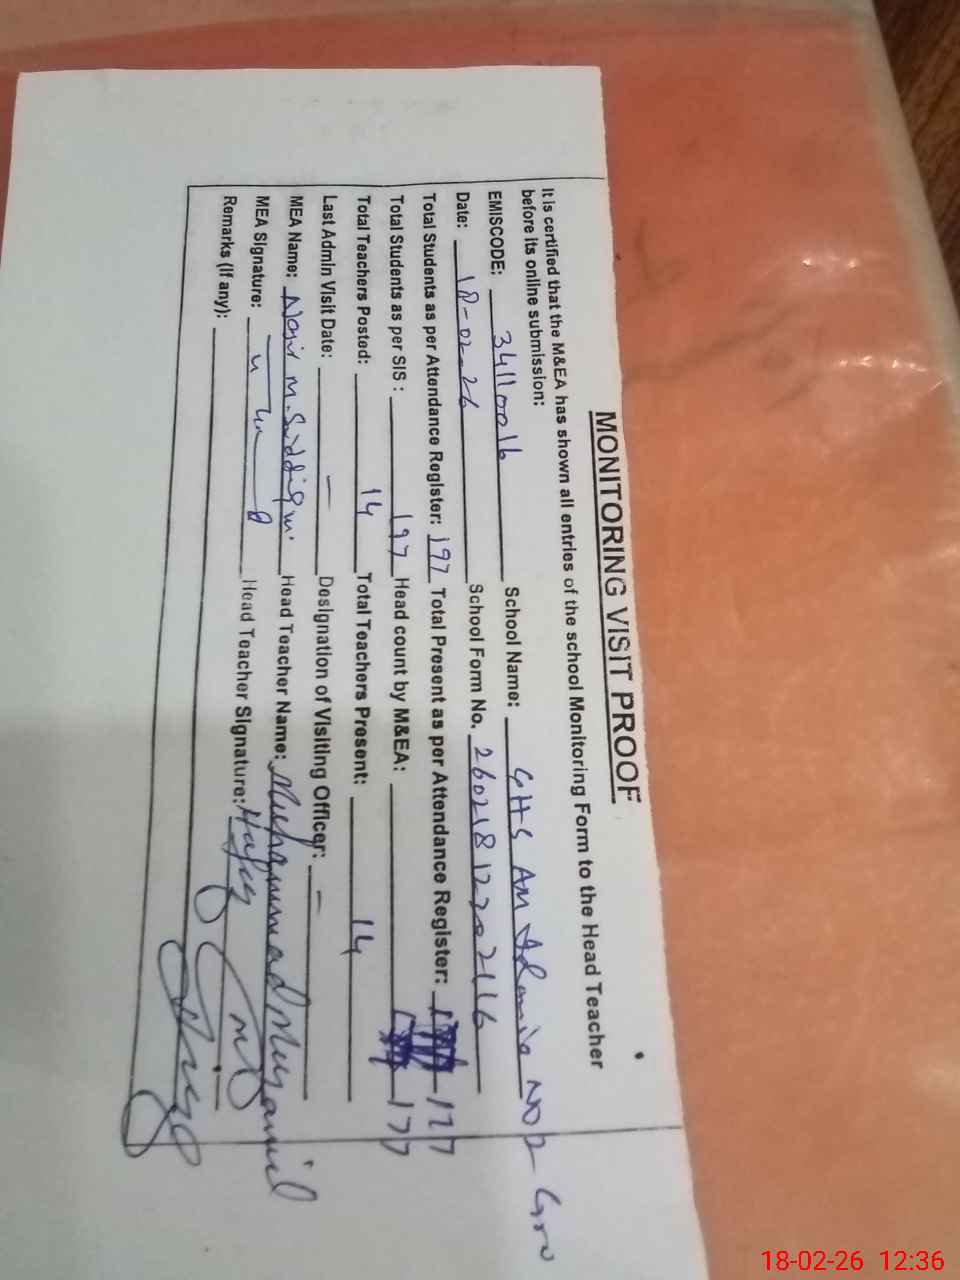 MONITORING VISIT PROOF
It is certified that the M&EA has shown all entries of the school Monitoring Form to the Head Teacher
before its online submission:
EMISCODE: 34110016 School Name: GHS No 2
Date: 18-02-26 School Form No. 260218122702116
Total Students as per Attendance Register: 197 Total Present as per Attendance Register: 177
Total Students as per SIS : 197 Head count by M&EA: 177
Total Teachers Posted: 14 Total Teachers Present: 14
Last Admin Visit Date: — Designation of Visiting Officer: —
MEA Name: M. Siddiqui Head Teacher Name: Muhammad
MEA Signature: Head Teacher Signature: Hafiz
Remarks (if any):
18-02-26 12:36